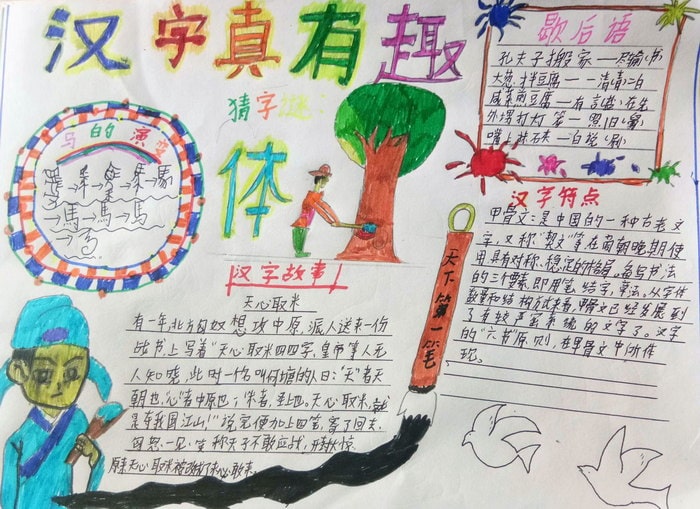 汉字真有趣
猜字谜:
体
马的演变
歇后语
孔夫子搬家——尽输(书)
大葱拌豆腐——清(青)二白
咸菜煎豆腐—有言(盐)在先
外甥打灯笼—照旧(舅)
嘴上抹石灰—白说(刷)
汉字特点
甲骨文:是中国的一种古老文
字,又称“契文”
用具有对称、稳定的格局。
的三个要素,即用笔、结字、章法。从字体
数量和结构方式来看,甲骨文已经发展到
了有较严密系统的文字了。汉字
的“六书”原则,在甲骨文中
汉字故事
天心取米
有一年,北方匈奴想攻中原,派人送来一份
战书,上写着“天心取米四四字,皇帝等人无
人知晓,此时一个名叫何瑭的人曰:“天”者天
朝也;心”者中原也;米者,圣上也。天心取米,就
是夺我国江山!”说完便加上四笔,寄了回去。
天下第一笔